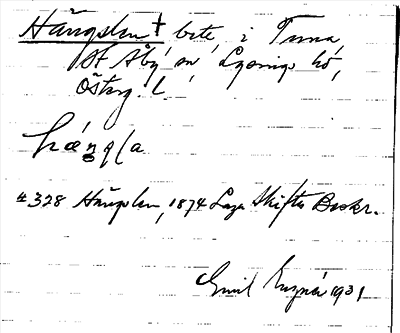 Hängslan † bete i Tuna,
St Åby sn, Lysings hd,
Östng. l.
hæŋsla
#328 Hängslan, 1874 Laga Skiftes Beskr.
Emil 1931